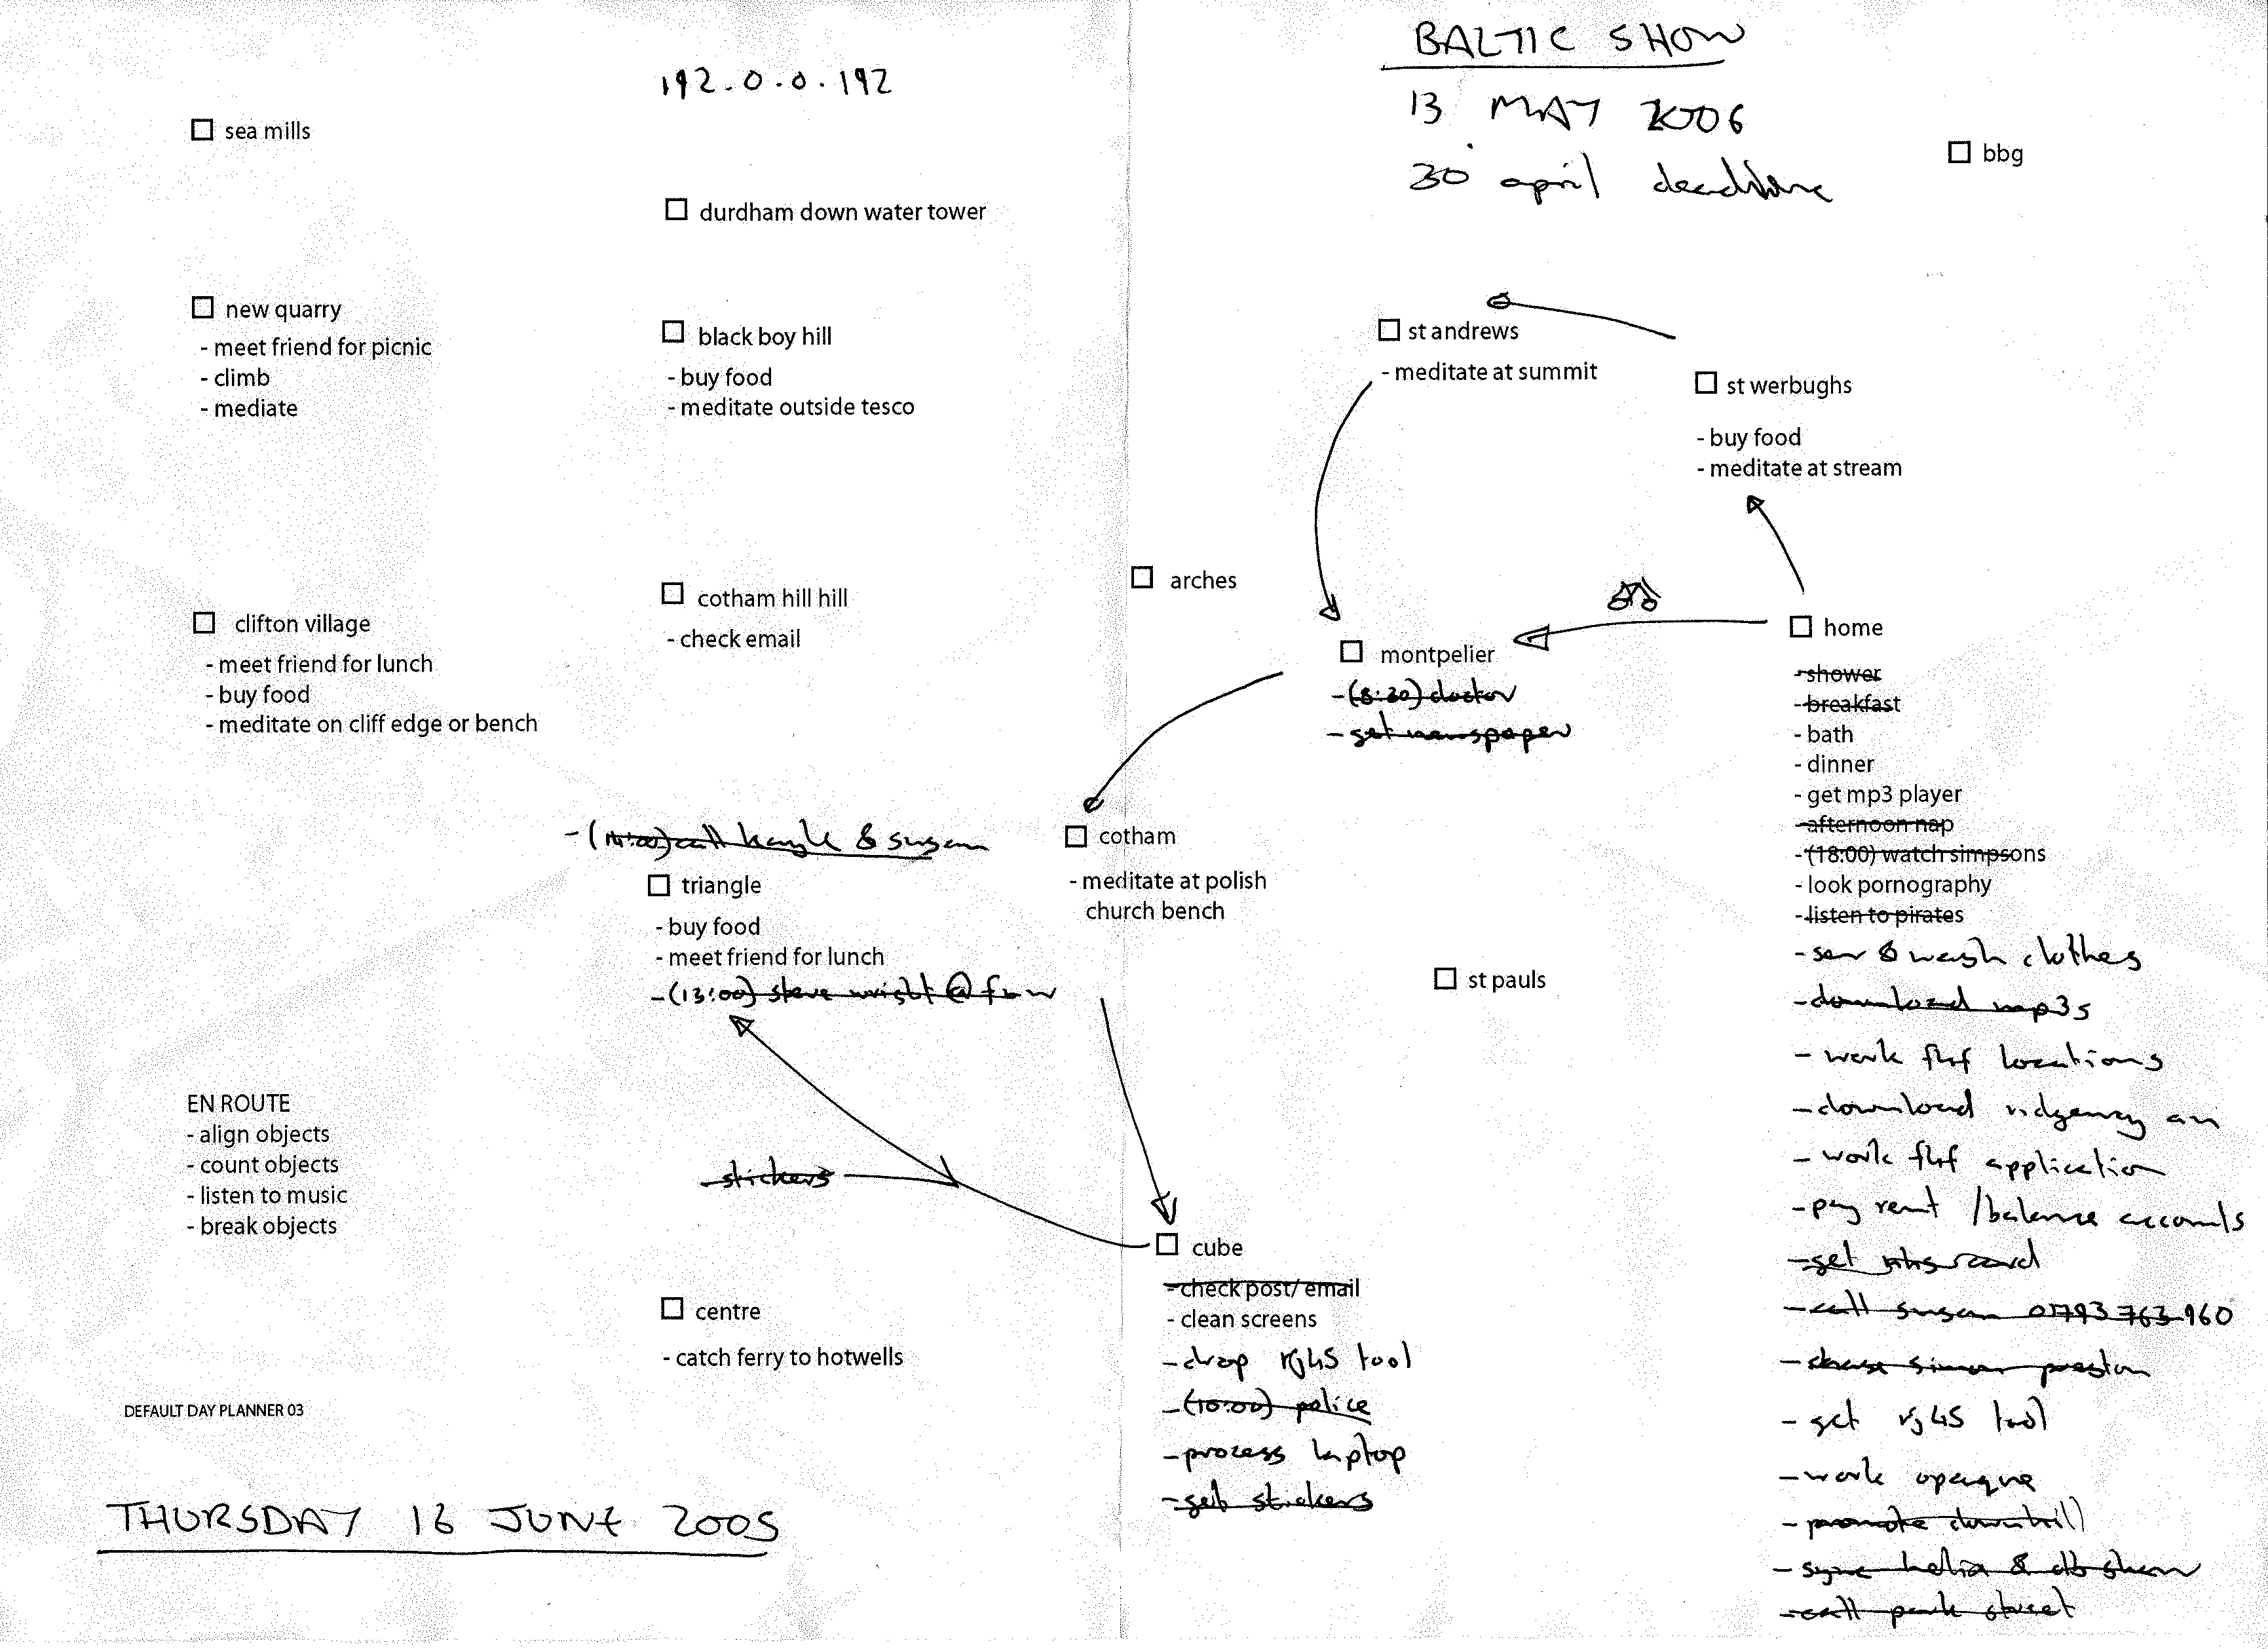 192.0.0.192
sea mills
durdham down water tower
new quarry
- meet friend for picnic
- climb
- mediate
black boy hill
- buy food
- meditate outside tesco
clifton village
- meet friend for lunch
- buy food
- meditate on cliff edge or bench
cotham hill hill
- check email
- (14:00) call & susan
triangle
- buy food
- meet friend for lunch
- (13:00) steve wright @
EN ROUTE
- align objects
- count objects
- listen to music
- break objects
stickers
centre
- catch ferry to hotwells
DEFAULT DAY PLANNER 03
THURSDAY 16 JUNE 2005
BALTIC SHOW
13 MAY 2006
30 april deadline
bbg
st andrews
- meditate at summit
st werbughs
- buy food
- meditate at stream
arches
montpelier
- (8:30) doctor
- get newspaper
cotham
- meditate at polish
church bench
st pauls
cube
- check post/ email
- clean screens
- drop rj45 tool
- (10:00) police
- process laptop
- get stickers
home
- shower
- breakfast
- bath
- dinner
- get mp3 player
- afternoon nap
- (18:00) watch simpsons
- look pornography
- listen to pirates
- sew & wash clothes
- download mp3s
- work locations
- download
- work application
- pay rent /balance accounts
- get
- call susan 01793 763 960
- simon preston
- get rj45 tool
- work opaque
- promote downhill
- sync helia &
- call park street